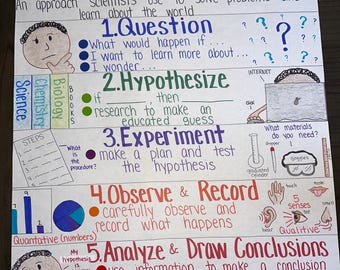 An approach scientists use to solve problems and
learn about the world
1. Question
What would happen if...
I want to learn more about...
I wonder...
Science
Chemistry
Biology
BOOKS
2. Hypothesize
if ________, then ________
research to make an
educated guess
INTERNET
STEPS
What is the procedure?
3. Experiment
make a plan and test
the hypothesis
What materials do you need?
graduated cylinder
goggles
4. Observe & Record
carefully observe and
record what happens
Quantitative (numbers)
hear
touch
5 senses
Qualitative
My hypothesis is
5. Analyze & Draw Conclusions
use information to make a conclusion